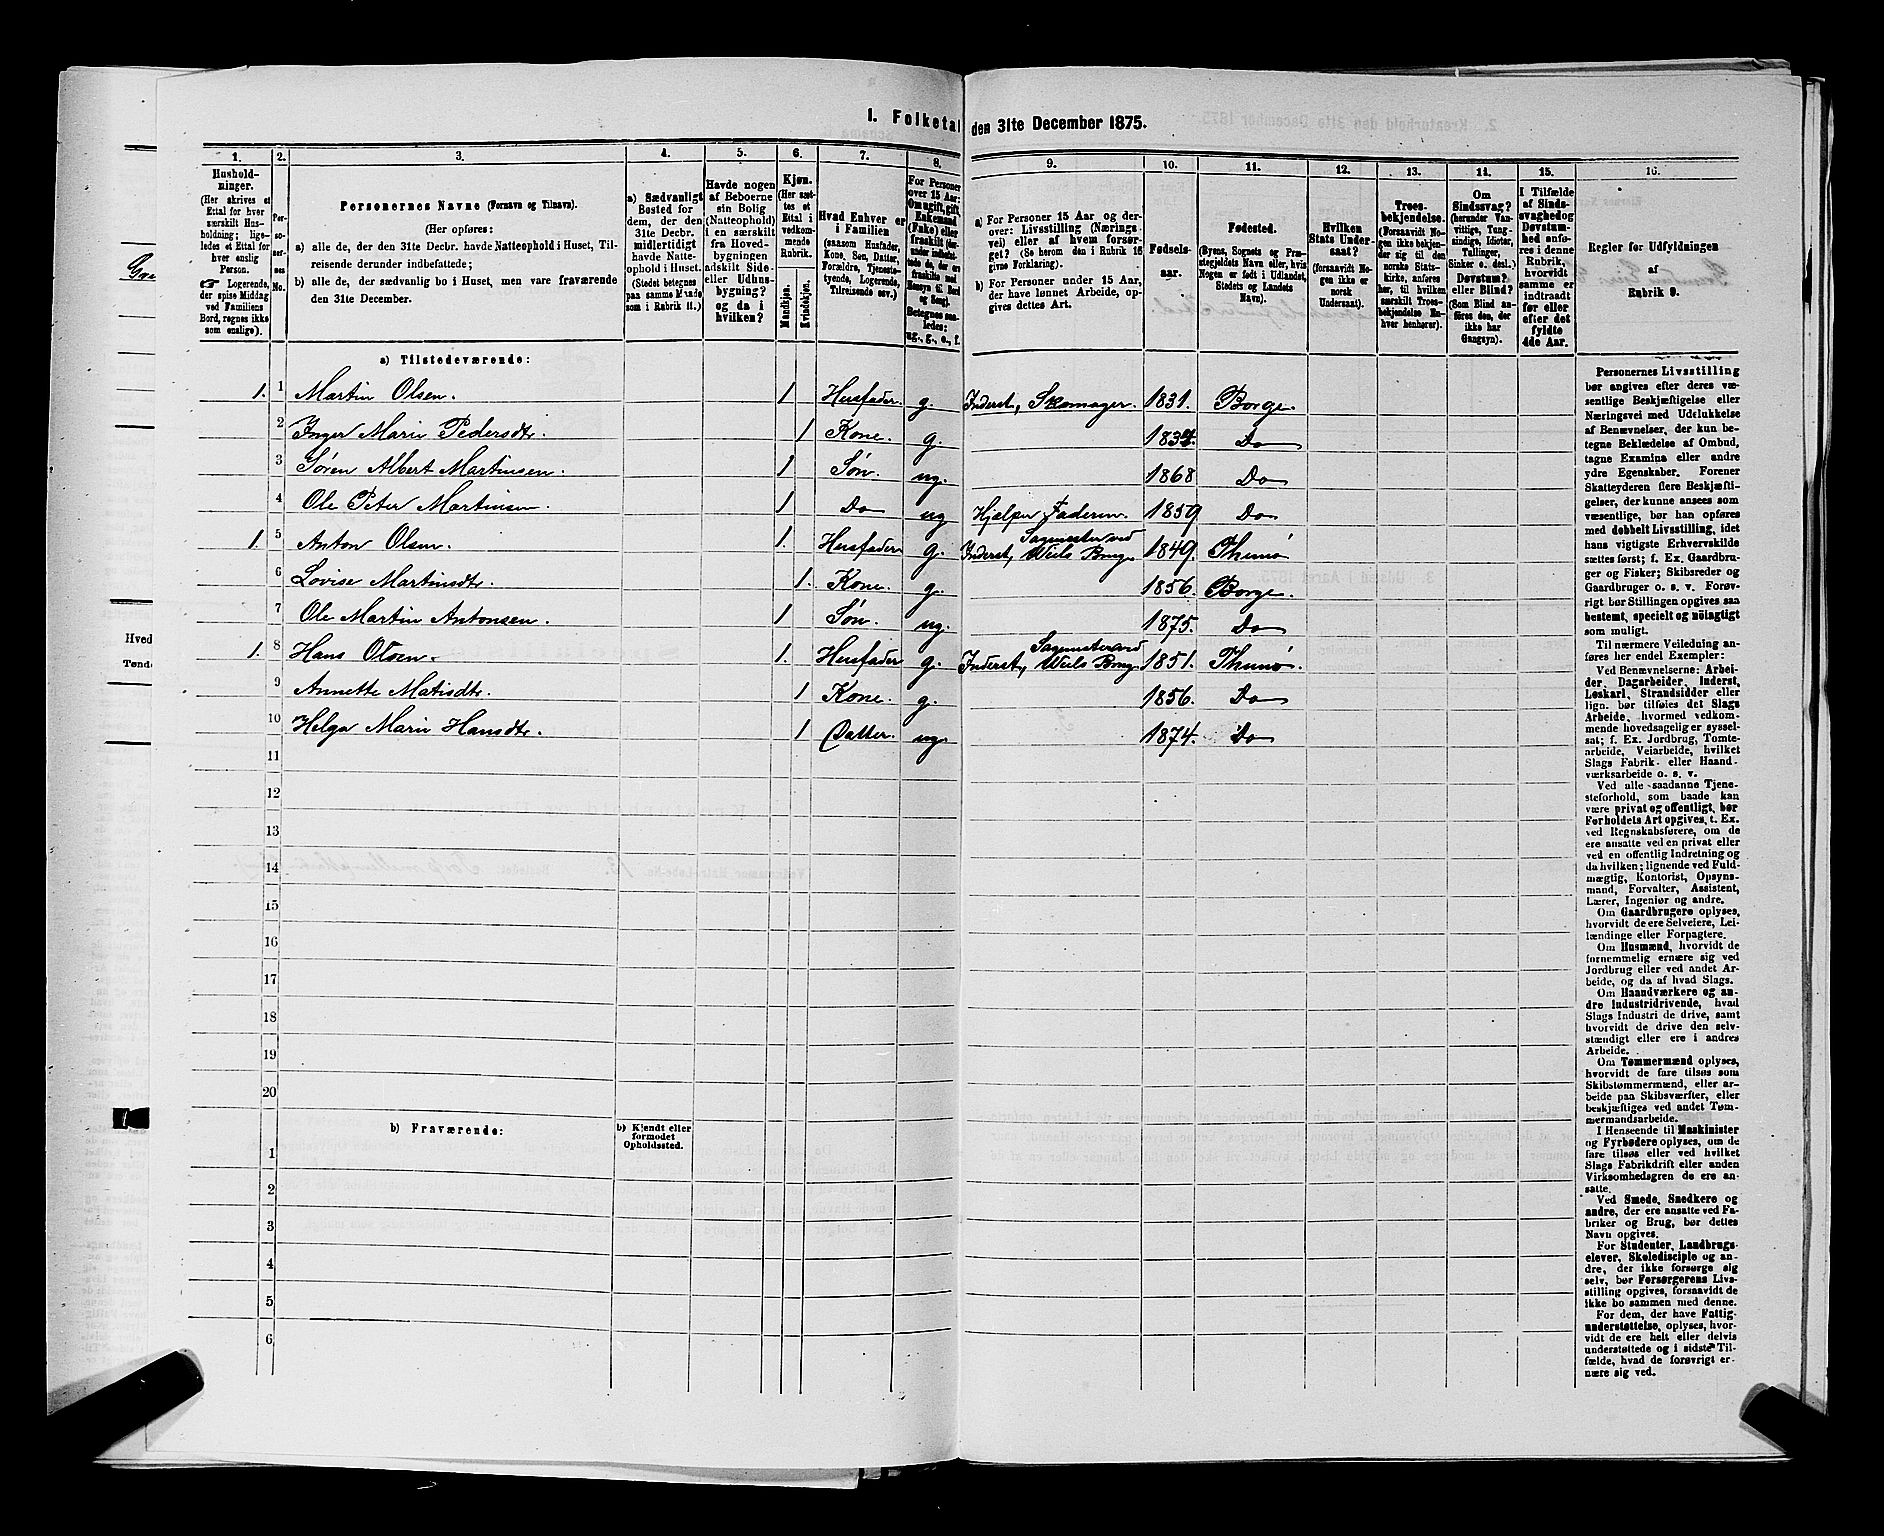 1. Folketal den 31te December 1875.
1. 2. 3. 4. 5. 6. 7. 8. 9. 10. 11. 12. 13. 14. 15. 16.
Hushold-
ninger.
(Her skrives et
Ettal for hver
særskilt Hus-
holdning; lige-
ledes et Ettal for
hver enslig
Person.
Logerende,
der spise Middag
ved Familiens
Bord, regnes ikke
som enslige).
Per-
so-
ner-
nes
No.
Personernes Navne (Fornavn og Tilnavn).
(Her opføres:
a) alle de, der den 31te Decbr. havde Natteophold i Huset, Til-
reisende derunder indbefattede;
b) alle de, der sædvanlig bo i Huset, men vare fraværende
den 31te December.
a) Sædvanligt
Bosted for
dem, der den
31te Decbr.
midlertidigt
havde Natte-
ophold i Huset.
(Stedet betegnes
paa samme Maade
som i Rubrik 11.)
Havde nogen
af Beboerne
sin Bolig
(Natteophold)
i en særskilt
fra Hoved-
bygningen
adskilt Side-
eller Udhus-
bygning?
og da i
hvilken?
Kjøn.
(Her sæt-
tes et
Ettal i
vedkom-
mende
Rubrik.
Mandkjøn.
Kvindekjøn.
Hvad Enhver er
i Familien
(saasom Husfader,
Kone, Søn, Datter,
Forældre, Tjeneste-
tyende, Logerende,
Tilreisende osv.)
For Personer
over 15 Aar:
Om ugift, gift,
Enkemand
(Enke) eller
fraskilt
Betegnes saa-
ledes:
ug., g., e., f.
a) For Personer 15 Aar og der-
over: Livsstilling (Nærings-
vei) eller af hvem forsør-
get? (Se herom den i Rubrik 16
givne Forklaring).
b) For Personer under 15 Aar,
der have lønnet Arbeide, op-
gives dettes Art.
Fødsels-
aar.
Fødested.
(Byens, Sognets og Præ-
stegjeldets Navn eller, hvis
Nogen er født i Udlandet,
Stedets og Landets
Navn).
Hvilken
Stats Under-
saat?
(forsaavidt No-
gen ikke er
norsk
Undersaat).
Troes-
bekjendelse.
(Forsaavidt No-
gen ikke bekjen-
der sig til den
norske Stats-
kirke, anføres
her, til hvilken
særskilt Troes-
bekjendelse En-
hver henhører).
Om
Sindssvag?
(herunder Van-
vittige, Tung-
sindige, Idioter,
Tullinger,
Sinker o. desl.)
Døvstum?
eller Blind?
(Som Blind an-
føres den, der
ikke har
Gangsyn).
I Tilfælde
af Sinds-
svaghed og
Døvstum-
hed anfø-
res i denne
Rubrik,
hvorvidt
samme er
indtraadt
før eller
efter det
fyldte
4de Aar.
Regler for Udfyldningen
af
Rubrik 9.
a) Tilstedeværende:
1. 1 Martin Olsen. 1 Husfader. g. Inderst, Skomager. 1831. Borge.
2 Inger Marie Pedersdtr. 1 Kone. g. 1834. Do
3 Søren Albert Martinsen. 1 Søn. ug. 1868 Do
4 Ole Peter Martinsen. 1 Do ug Hjælper Faderen. 1859 Do
1. 5 Anton Olsen. 1. Husfader g. Inderst, Sagmester ved Wiels Brug. 1849. Thunø
6 Lovise Martinsdtr. 1. Kone. g. 1856. Borge.
7 Ole Martin Antonsen. 1 Søn. ug. 1875. Do
1. 8 Hans Olsen. 1. Husfader g. Inderst, Sagmester ved Wiels Brug 1851. Thunø.
9 Annette Matisdtr. 1 Kone. g. 1856. Do
10 Helga Marie Hansdtr. 1 Datter. ug. 1874. Do
11
12
13
14
15
16
17
18
19
20
b) Fraværende:
b) Kjendt eller
formodet
Opholdssted.
1
2
3
4
5
6
Personernes Livsstilling
bør angives efter deres væ-
sentlige Beskjæftigelse eller
Næringsvei med Udelukkelse
af Benævnelser, der kun be-
tegne Beklædelse af Ombud,
tagne Examina eller andre
ydre Egenskaber. Forener
Skatteyderen flere Beskjæfti-
gelser, der kunne ansees som
væsentlige, bør han opføres
med dobbelt Livsstilling, idet
hans vigtigste Erhvervskilde
sættes først; f. Ex. Gaardbru-
ger og Fisker; Skibsreder og
Gaardbruger o. s. v. Forøv-
rigt bør Stillingen opgives saa
bestemt, specielt og nöiagtigt
som muligt.
Til nærmere Veiledning an-
føres her endel Exempler:
Ved Benævnelserne: Arbei-
der, Dagarbeider, Inderst,
Løskarl, Strandsidder eller
lign. bør tilføies det Slags
Arbeide, hvormed vedkom-
mende hovedsagelig er syssel-
sat; f. Ex. Jordbrug, Tomte-
arbeide, Veiarbeide, hvilket
Slags Fabrik- eller Haand-
værksarbeide o. s. v.
Ved alle saadanne Tjene-
steforhold, som baade kan
være privat og offentligt, bør
Forholdets Art opgives, t. Ex.
ved Regnskabsførere, om de
ere ansatte ved en privat eller
ved en offentlig Indretning og
da hvilken; lignende ved Fuld-
mægtig, Kontorist, Opsyns-
mand, Forvalter, Assistent,
Lærer, Ingeniør og andre.
Om Gaardbrugere oplyses,
hvorvidt de ere Selveiere, Lei-
lændinge eller Forpagtere.
Om Husmænd, hvorvidt de
fornemmelig ernære sig ved
Jordbrug eller ved andet Ar-
beide, og da af hvad Slags.
Om Haandværkere og an-
dre Industridrivende, hvad
Slags Industri de drive, samt
hvorvidt de drive den selv-
stændigt eller ere i andres
Arbeide.
Om Tømmermænd oplyses,
hvorvidt de fare tilsøs som
Skibstømmermænd, eller ar-
beide paa Skibsværfter, eller
beskjæftiges ved andet Tøm-
mermandsarbeide.
I Henseende til Maskinister
og Fyrbødere oplyses, om de
fare tilsøs eller ved hvilket
Slags Fabrikdrift eller anden
Virksomhedsgren de ere an-
satte.
Ved Smede, Snedkere og
andre, der ere ansatte ved Fa-
briker og Brug, bør dettes
Navn opgives.
For Studenter, Landbrugs-
elever, Skoledisciple og an-
dre, der ikke forsørge sig
selv, bør Forsørgerens Livs-
stilling opgives, forsaavidt de
ikke bo sammen med denne.
For dem, der have Fattig-
understøttelse, oplyses, hvor-
vidt de ere helt eller delvis
understøttede og i sidste Til-
fælde, hvad de forøvrigt er-
nære sig ved.